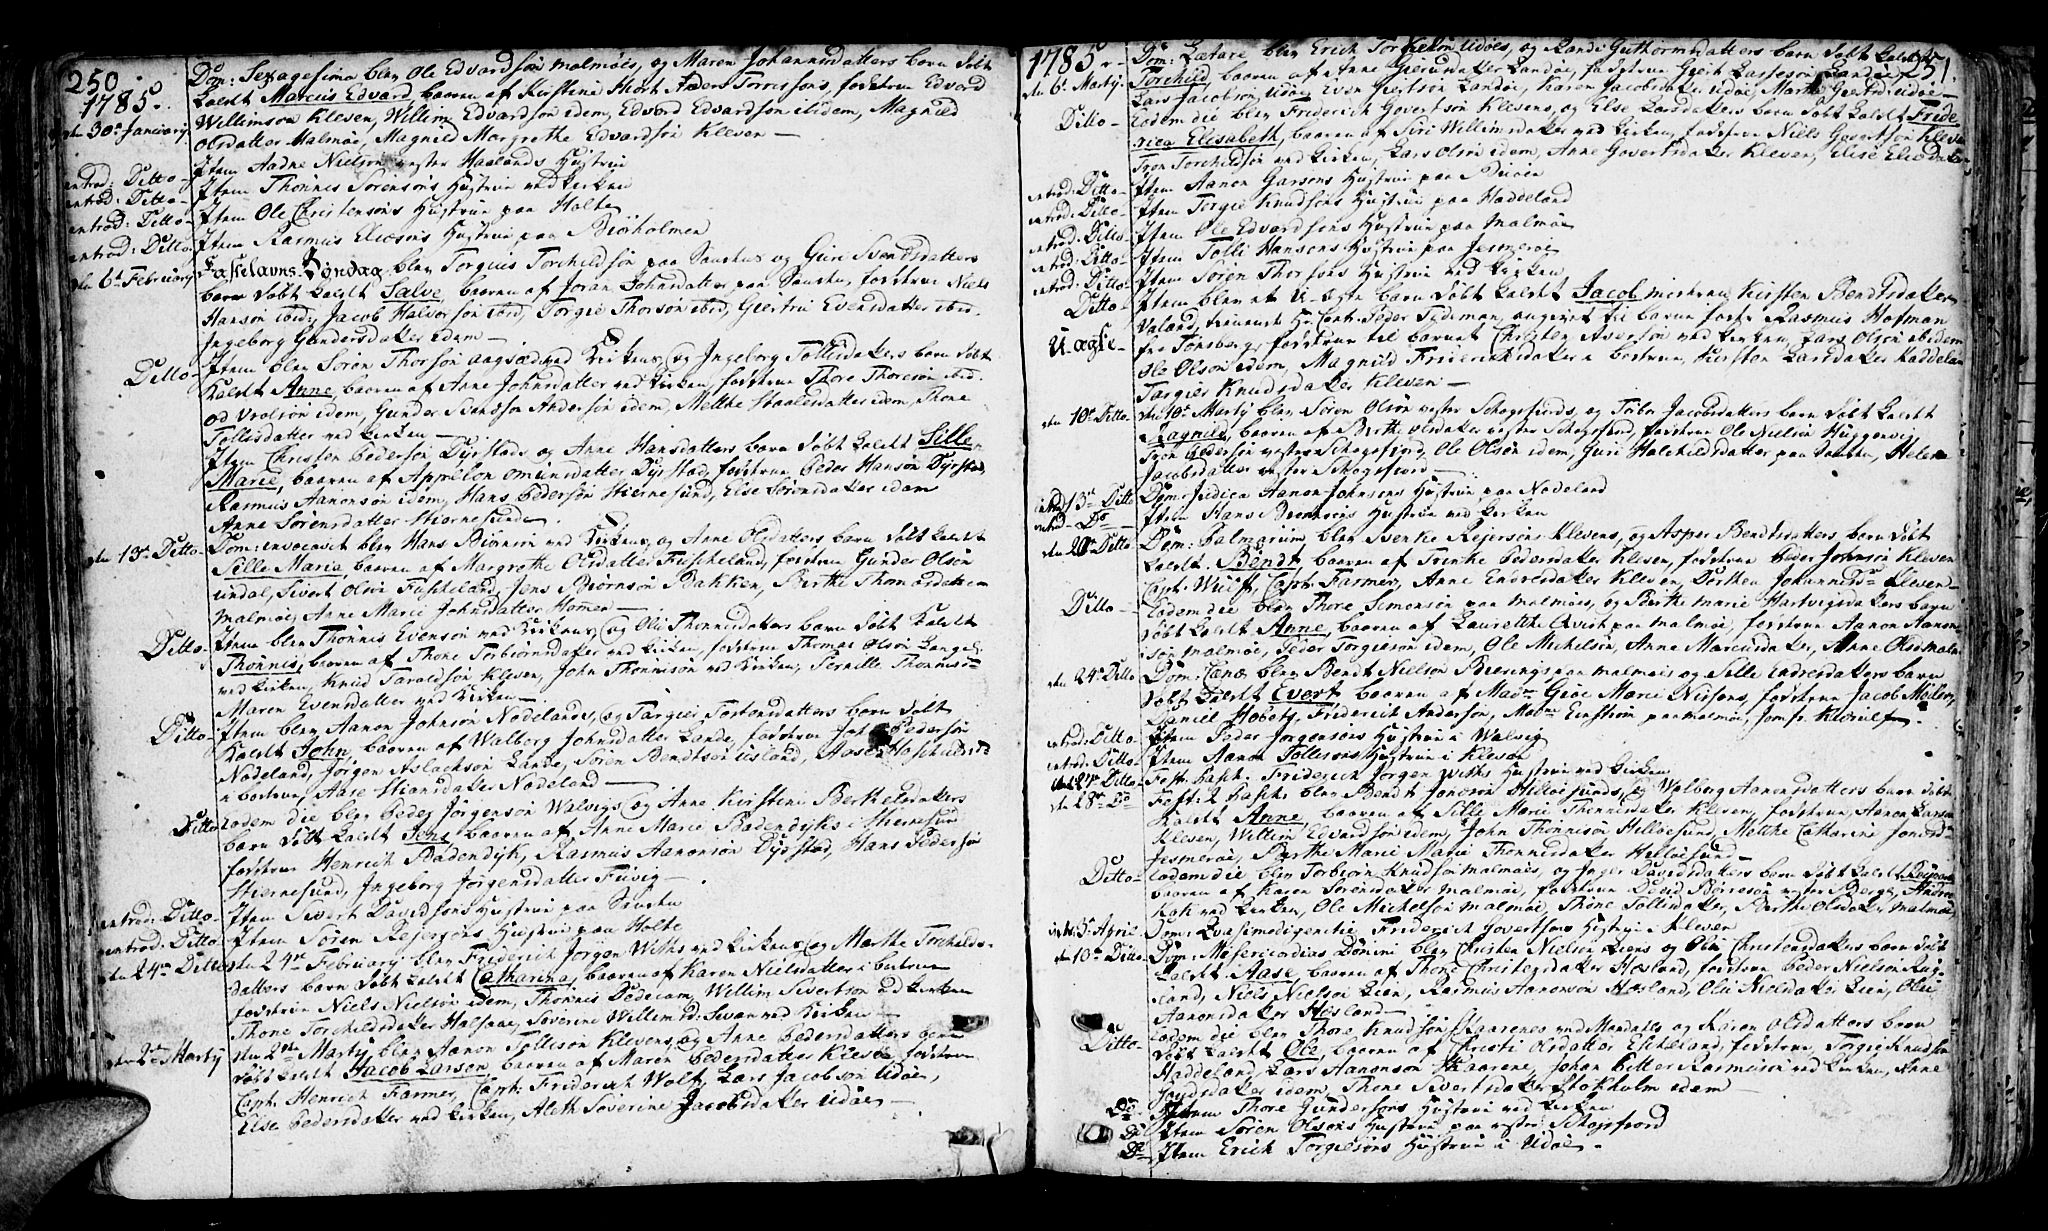 250.
1785.
Dom: Sexagesima blev Ole Edvardsøn malmøes, og Maren Johannisdatters barn døbt
kaldt Marcus Edvard, baaren af Kirstene Hiort Anders Torrissøns, faddrene Edvard
den 30te January Willimsøn Kleven, Willim Edvardsøn idem, Edvard Edvardsøn ibidem, Magnild
Olsdatter Malmøe, Magnild Margrethe Edvardsøn Kleven
Item Aadne Nielsøn vester Haalands Hustrue
introd: Ditto Item Thönnis Sörensöns Hustrue ved Kirken
introd: Ditto Item Ole Christensöns Hustrue paa Holte
introd: Ditto Item Rasmus Eliesöns Hustrue paa Biörholmen
den 6te February Fastelavns Söndag blev Torgius Torchildsön paa Sanstue og Guri Svendsdatters
barn döbt kaldt Salve, baaren af Joran Johnsdatter paa Sanstue, faddrene Niels
Hansön ibid, Jacob Halvorsön ibid, Torgie Thorsön ibid, Giertru Evensdatter ibid.
Ingeborg Gundersdatter idem
Ditto Item blev Sören Thorsön aagsæd ved Kirken, og Ingeborg Tollisdatters barn döbt
kaldt Anne, baaren af Anne Johnsdatter ved Kirken, faddrene Thore Thoresön ibid.
od Vrolsön idem, Gunder Svendsön Andersön idem, Metthe Staalesdatter idem, Thone
Tollisdatter ved Kirken
Item Christen Pedersön Dyrstads og Anne Hansdatters barn döbt kaldt Sille
Marie, baaren af Appelon Omundsdatter Dyrstad, faddrene Peder Hansön Dyrstad,
Rasmus Aanonsön idem, Hans Pedersön Stiernesund, Else Sörensdatter idem
Anne Sörensdatter Stiernesund
den 13de Ditto Dom: invocavit blev Hans Biörnsön ved Kirken, og Anne Olsdatters barn döbt kaldt
Sille Maria, baaren af Margrethe Olsdatter Fuskeland, faddrene Gunder Olsön
undal, Sivert Olsön Fuskeland, Jens Biörnsön Bakken, Berthe Thomasdatter
malmöe, Anne Marie Johnsdatter Homen
Ditto Item blev Thönnis Evensön ved Kirken, og Olu Thonnesdatters barn döbt kaldt
Thönnis, baaren af Thone Torbiörnsdatter ved Kirken, faddrene Thomas Olsön
ved Kirken, Knud Taraldsön Kleven, John Thönnisön ved Kirken, Pernille Thönnisd.
Maren Evensdatter ved Kirken
Ditto Item blev Aanon Johnsön Nodelands, og Targier Torkensdatters barn döbt
kaldt John, baaren af Walborg Johnsdatter Lande, faddrene John Pedersön
Nodeland, Jörgen Aslacksön Lande, Sören Bendtsön Uland, Aase
i bestrue, Aase Stiansdatter Nodeland
Ditto Eodem die blev Peder Jörgensön Walvigs, og Anne Kirstine Berthelsdatters
barn döbt kaldt Jens, baaren af Anne Marie Badendyks i Stiernesund
faddrene Henrich Badendyk, Rasmus Aanonsön Dyrstad, Hans Pedersön
Stiernesund, Ingeborg Jörgensdatter Fuvig
introd: Ditto Item Sivert Davidsöns Hustrue paa Sanstue
introd: Ditto Item Sören Rejersöns Hustrue paa Holte
den 24de Ditto den 24de February blev Friderich Jörgen Withs ved Kirken, og Marthe Torchilds-
datters barn döbt kaldt Catharina, baaren af Karen Nielsdatter i bestrue
faddrene Niels Nielsön idem, Thönnis Dedecam, Willim Sivertsön ved Kirken
Thorne Torchildsdatter Halsaae, Severine Willemsd: Svan ved Kirken
den 2den Marty den 2den Marty blev Aanon Tollisön Klevens, og Anne Pedersdatters barn
döbt kaldt Jacob Larson, baaren af Maren Pedersdatter Kleven, faddrene
Capt. Henrich Farmer, Capt: Friderich Wolf, Lars Jacobsön Udöe,
Else Pedersdatter ved Kirken, Aleth Severine Jacobsdatter Udöe
1785
251.
den 6te Marty Dom: Lætare blev Erich Torkelsön Udöes, og Randi Guthormsdatters barn döbt kaldt
Torchild, baaren af Anne Giertsdatter Landöe, faddrene Giert Larssøn Landöe,
Lars Jacobsön Udöe, Even Giertsön Landöe, Karen Jacobsdatter Udöe, Marthe Giertsd: Udöe
Ditto Eodem die blev Friderich Govertsön Klevens, og Else Larsdatters barn döbt kaldt Fride-
rica Elisabeth, baaren af Siri Willimsdatter ved Kirken, faddrene Niels Govertsön Kleven
Tron Torchildsön ved Kirken, Lars Olsön idem, Anne Govertsdatter Kleven, Elise Eliedatter
introd: Ditto Item Aanon Garsöns Hustrue paa Duöen
introd: Ditto Item Torgie Knudsöns Hustrue paa Haddeland
introd: Ditto Item Ole Edvardsöns Hustrue paa malmöe
introd: Ditto Item Tolli Hansöns Hustrue paa Jesmeröe
introd: Ditto Item Sören Thorsöns Hustrue ved Kirken
Ditto Item blev et U-ægte barn döbt kaldt Jacob moderen Kirsten Bendtsdatter
U-ægte Valand, Capt: Peder Tideman, angivet til barne fader Rasmus Hofman
fra Tönsberg, faddrene til barnet Christen Aversön ved Kirken, Lars Olsön ibidem
Ole Olsön idem, Magnild Frideriksdatter i bestrue, Kirsten Larsdatter Haddeland
Targier Knudsdatter Kleven
den 10de Ditto den 10de Marty blev Sören Olsön vester Schogsfiords, og Tobor Jacobsdatters barn döbt kaldt
Ragnild, baaren af Berthe Olsdatter vester Schogsfiord, faddrene Ole Nielsön Huggenvig
Tron Pedersön vester Schogsfiord, Ole Olsön idem, Guri Halchildsdatter paa Sanstue, Helene
Jacobsdatter vester Schogsfiord
introd 13de Ditto Dom: Judica Aanon Johnsöns Hustrue paa Nodeland
introd: Do Item Hans Biörnsöns Hustrue ved Kirken
den 20de Ditto Dom: Palmarum blev Benke Rejersöns Klevens, og Asper Bendtsdatters barn döbt
kaldt Bendt, baaren af Trinke Pedersdatter Kleven, faddrene Peder Johnsön Kleven
Capt. Wulff, Capt: Farmer, Anne Endresdatter Kleven, Dorthea Johannesd. Kleven
Ditto Eodem die blev Thore Simonsön paa malmöes, og Berthe Marie Hartvigsdatters barn
döbt kaldt Anne, baaren af Laurethe Qvist paa malmöe, faddrene Aanon Aanon-
sön malmöe, Peder Torgiesön idem, Ole Michelsön, Anne Marcusdatter, Anne Olsd malm:
den 24de Ditto Dom: Cænæ blev Bendt Nielsön Beerings paa malmöes og Sille Endresdatters barn
döbt kaldt Evert, baaren af Madme Giöe Marie Nielsens, faddrene Jacob Möller,
Daniel Hoboty, Friderich Andersön, Madme Einström paa malmöe, Jomfr. Klörulf
introd: Ditto Item Peder Jörgensöns Hustrue i Walvig
introd: Ditto Item Aanon Tollisöns Hustrue i Kleven
den 27de Ditto Fest: Pasch: Friderich Jörgen Withs Hustrue ved Kirken
den 28de Do Fest: 2 Pasch: blev Bendt Jonasön Hellöesunds, og Walborg Aanonsdatters barn döbt
kaldt Anne, baaren af Sille Marie Thonnisdatter Kleven, faddrene Aanon Larsön
Kleven, Willim Edvardsön idem, John Thönnisön Hellöesund, Metthe Catharine Jonasd:
Jesmeröe, Berthe Marie Marie Thonnesdatter Hellöesund
Ditto Eodem die blev Torbiörn Knudsön malmöes, og Inger Davidsdatters barn döbt kaldt
baaren af Karen Sörensdatter malmöe, faddrene David Börresön vester Berge, Anders
Kok ved Kirken, Ole Michelsön malmöe, Thone Tollisdatter, Berthe Olsdatter malmöe
intr: 3die Aprie Dom: Qvasimodogeniti Friderich Govertsöns Hustrue i Kleven
den 10de Ditto Dom: Misericordias Domini blev Christen Nielsön Liens og Olu Christensdatters barn döbt
kaldt Aase, baaren af Thore Christensdatter Hesland, faddrene Peder Nielsön Rug-
land, Niels Nielsön Lien, Rasmus Aanonsön Hesland, Olu Nielsdatter Lien, Olu
Aanonsdatter Hesland
Ditto Eodem die blev Thore Knudsön Skaarenes ved Mandals og Karen Olsdatters barn
döbt kaldt Ole, baaren af Christi Olsdatter Eskeland, faddrene Torgie Knudsön
Haddeland, Lars Aanonsön Skaarene, Johan Petter Rasmusön ved Kirken, Anne
idem, Thone Sivertsdatter Stokholm idem
Do Item Thore Gundersöns Hustrue ved Kirken
Do Item Sören Olsöns Hustrue paa vestre Schogsfiord
Do Item Erich Torgiesöns Hustrue i Udöe